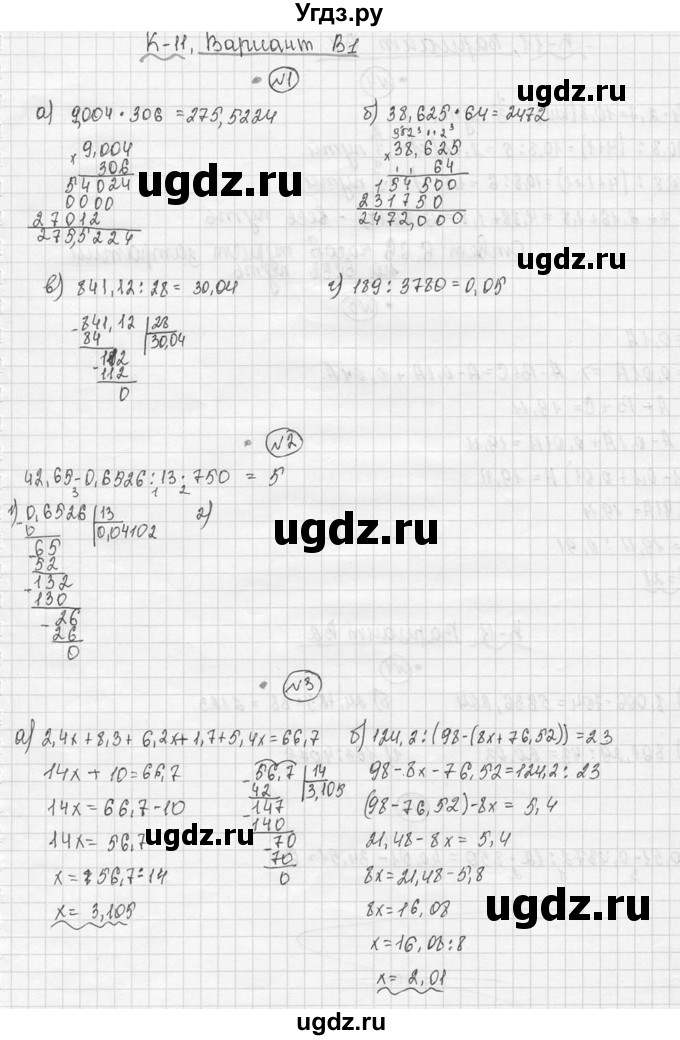 Угдз.ру
К-11, Вариант В1
№1
а) 9,004 · 306 = 275,5224
9,004
× 306
54024
0000
27012
275,5224
б) 38,625 · 64 = 2472
× 38,625
64
154500
231750
2472,000
в) 841,12 : 28 = 30,04
- 841,12 | 28
84 | 30,04
- 112
112
0
г) 189 : 3780 = 0,05
№2
42,65 - 0,6526 : 13 · 750 = 5
3 1 2
1) - 0,6526 | 13
0 | 0,04102
- 65
52
- 132
130
- 26
26
0
2)
№3
а) 2,4x + 8,3 + 6,2x + 1,7 + 5,4x = 66,7
14x + 10 = 66,7
14x = 66,7 - 10
14x = 56,7
x = 56,7 : 14
x = 3,105
- 56,7 | 14
42 | 3,105
- 147
140
- 70
70
0
б) 124,2 : (98 - (8x + 76,52)) = 23
98 - 8x - 76,52 = 124,2 : 23
(98 - 76,52) - 8x = 5,4
21,48 - 8x = 5,4
8x = 21,48 - 5,8
8x = 16,08
x = 16,08 : 8
x = 2,01
ugdz.ru
ugdz.ru
ugdz.ru
ugdz.ru
ugdz.ru
ugdz.ru
ugdz.ru
ugdz.ru
ugdz.ru